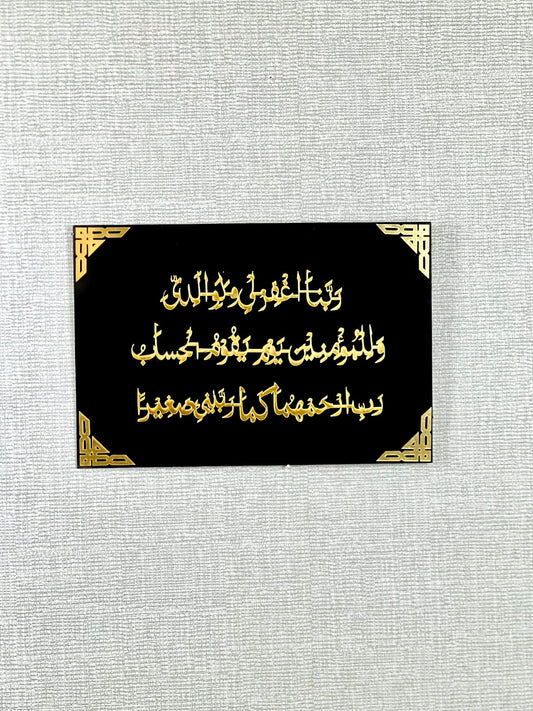 رَبَّنَا اغْفِرْ لِي وَلِوَالِدَيَّ
وَلِلْمُؤْمِنِينَ يَوْمَ يَقُومُ الْحِسَابُ
رَبِّ ارْحَمْهُمَا كَمَا رَبَّيَانِي صَغِيرًا